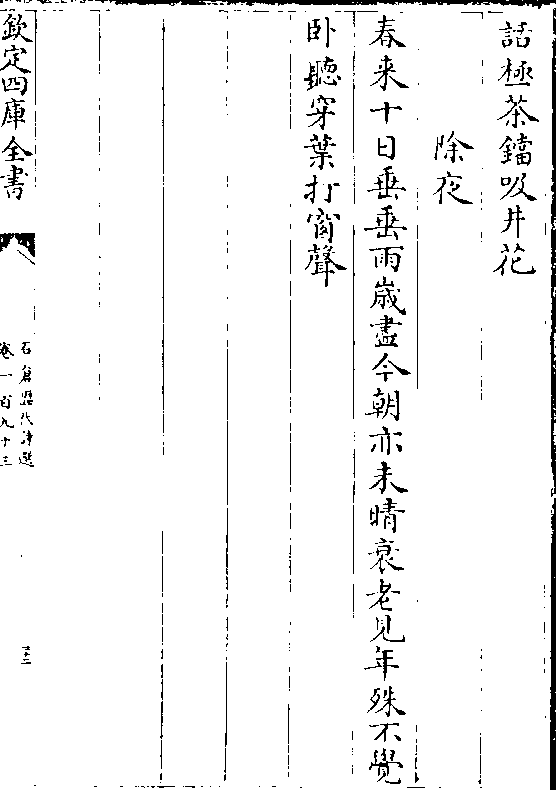 話極茶鐺吸井花
除夜
春来十日垂垂雨歲盡今朝亦未晴衰老見年殊不覺
卧聽穿葉打窗聲
欽定四庫全書
石倉歴代詩選
卷一百九十三